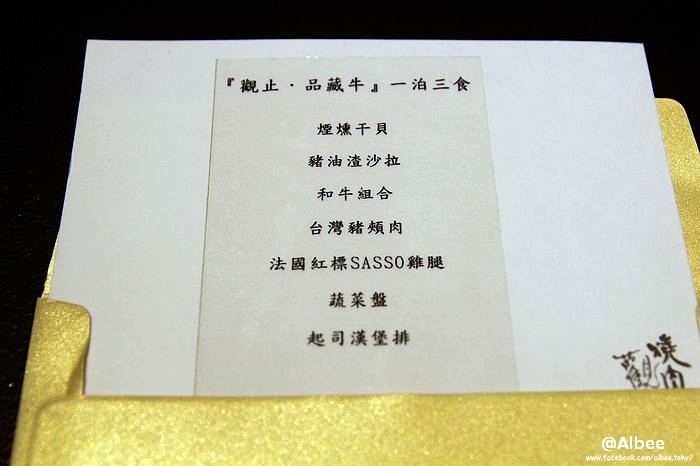 『觀止．品藏牛』一泊三食
煙燻干貝
豬油渣沙拉
和牛組合
台灣豬頰肉
法國紅標SASSO雞腿
蔬菜盤
起司漢堡排
燒肉
觀
@Albee
www.facebook.com/albee.toby/